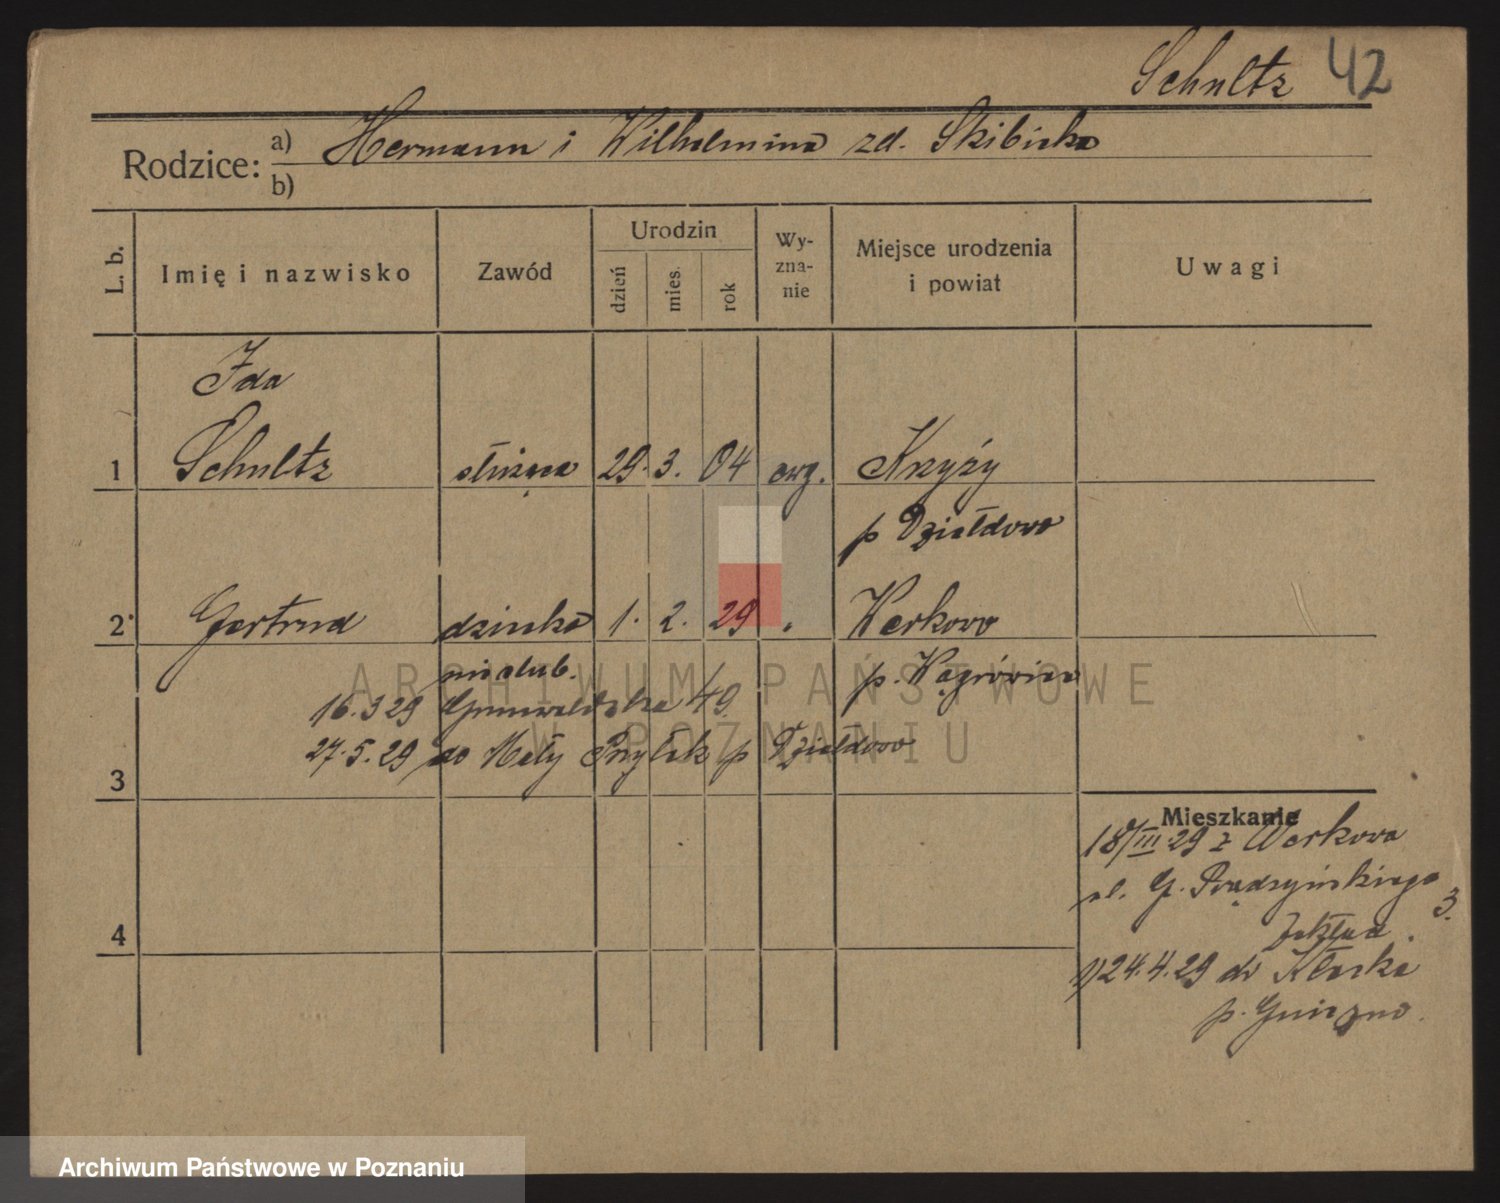 Schultz 42
Rodzice: a) Hermann i Wilhelmina zd. Skibicka
b)
L. b. Imię i nazwisko Zawód Urodzin dzień mies. rok Wyznanie Miejsce urodzenia i powiat Uwagi
Ida
1 Schultz służąca 29. 3. 04 ewg. Krzyży
p Działdowo
2 Gertrud dziecko 1. 2. 29 " Werkowo
nieslub. p. Wągrówiec
16.3 29 Grunwaldzka 49.
27.5.29 do Mały Przyłęk p Działdowo
3
Mieszkanie
18/III 29 z Werkowa
ul. G. Prądzyńskiego 3.
Zakład
4
1) 24.4.29 do Kłecka
p. Gniezno.
ARCHIWUM PAŃSTWOWE
W POZNANIU
Archiwum Państwowe w Poznaniu